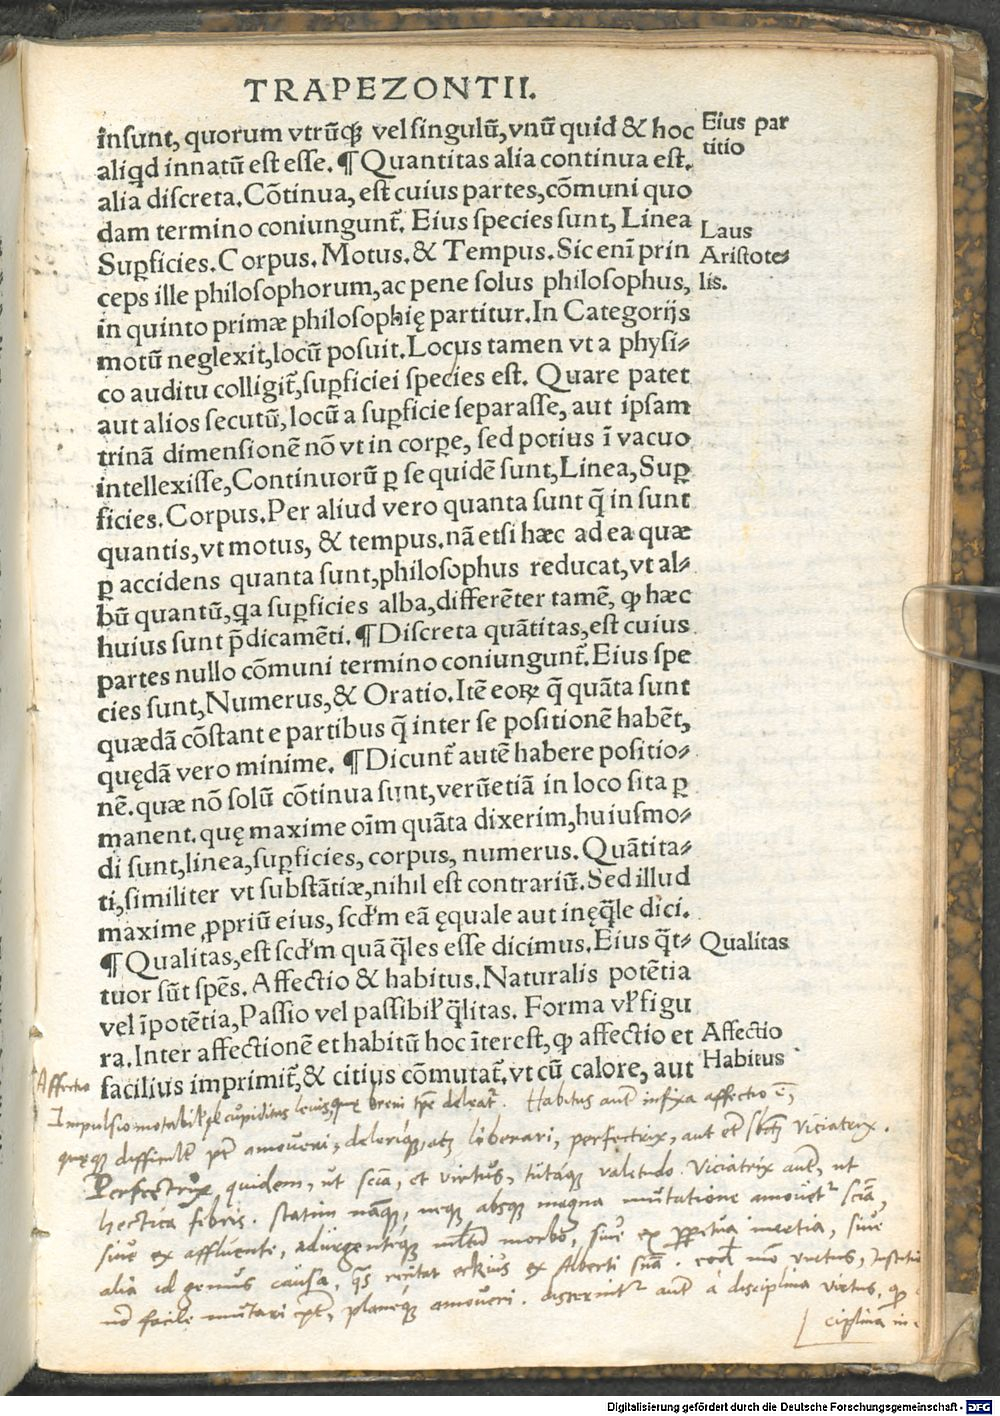 TRAPEZONTII.
insunt, quorum vtrūq; vel singulū, vnū quid & hoc
aliqd innatū est esse. ¶ Quantitas alia continua est.
alia discreta. Cōtinua, est cuius partes, cōmuni quo
dam termino coniungunt̃. Eius species sunt, Linea
Suꝑficies. Corpus. Motus. & Tempus. Sic eni᷒ prin
ceps ille philosophorum, ac pene solus philosophus,
in quinto primæ philosophię partitur. In Categorijs
motū neglexit, locū posuit. Locus tamen vt a physi-
co auditu colligit̃, suꝑficiei species est. Quare patet
aut alios secutū, locū a suꝑficie separasse, aut ipsam
trinā dimensionē nō vt in corꝑe, sed potius ī vacuo
intellexisse, Continuorū ꝑ se quidē sunt, Linea, Suꝑ
ficies. Corpus. Per aliud vero quanta sunt q̄ in sunt
quantis, vt motus, & tempus. nā etsi hæc ad ea quæ
ꝑ accidens quanta sunt, philosophus reducat, vt al-
bū quantū, qa suꝑficies alba, differēter tamē, ꝙ hæc
huius sunt p̄dicamēti. ¶ Discreta quātitas, est cuius
partes nullo cōmuni termino coniungunt̃. Eius spe
cies sunt, Numerus, & Oratio. Itē eoꝝ q̄ quāta sunt
quædā cōstant e partibus q̄ inter se positionē habēt,
quędā vero minime. ¶ Dicunt̃ autē habere positio-
nē. quæ nō solū cōtinua sunt, verūetiā in loco sita ꝑ
manent. quę maxime oīm quāta dixerim, huiusmo-
di sunt, linea, suꝑficies, corpus, numerus. Quātita-
ti, similiter vt substātiæ, nihil est contrariū. Sed illud
maxime ꝓpriū eius, scd'm eā ęquale aut inęq̄le dici.
¶ Qualitas, est scd'm quā q̄les esse dicimus. Eius q̄t-
tuor sūt spēs. Affectio & habitus. Naturalis potētia
vel īpotētia, Passio vel passibil' q̄litas. Forma vl' figu
ra. Inter affectionē et habitū hoc īterest, ꝙ affectio et
facilius imprimit̃, & citius cōmutat̃. vt cū calore, aut
Eius par
titio
Laus
Aristote-
lis.
Qualitas
Affectio
Habitus
Affectio
Impulsio motabil' cupiditas levisque brevi tp̄e deleat̃. Habitus aut̄ infixa affectio ē,
quęque difficult̄ amoveri, liberari, perfectrix, aut et viciatrix.
Perfectrix quidem, ut scīa, et virtus, tutaque valetudo. Viciatrix aut̄, ut
hectica febris. statim namque, neque absque magna mutatione amovet̃ scīa,
sive ex affluente, adurgenteque morbo, sive ex perpetua inertia, sive
alia id genus causa, recitat eckius ex Alberti virtus,
facile mutari planeque amoveri. discernit̃ aut̄ a disciplina virtus,
ciplina in
Digitalisierung gefördert durch die Deutsche Forschungsgemeinschaft - DFG